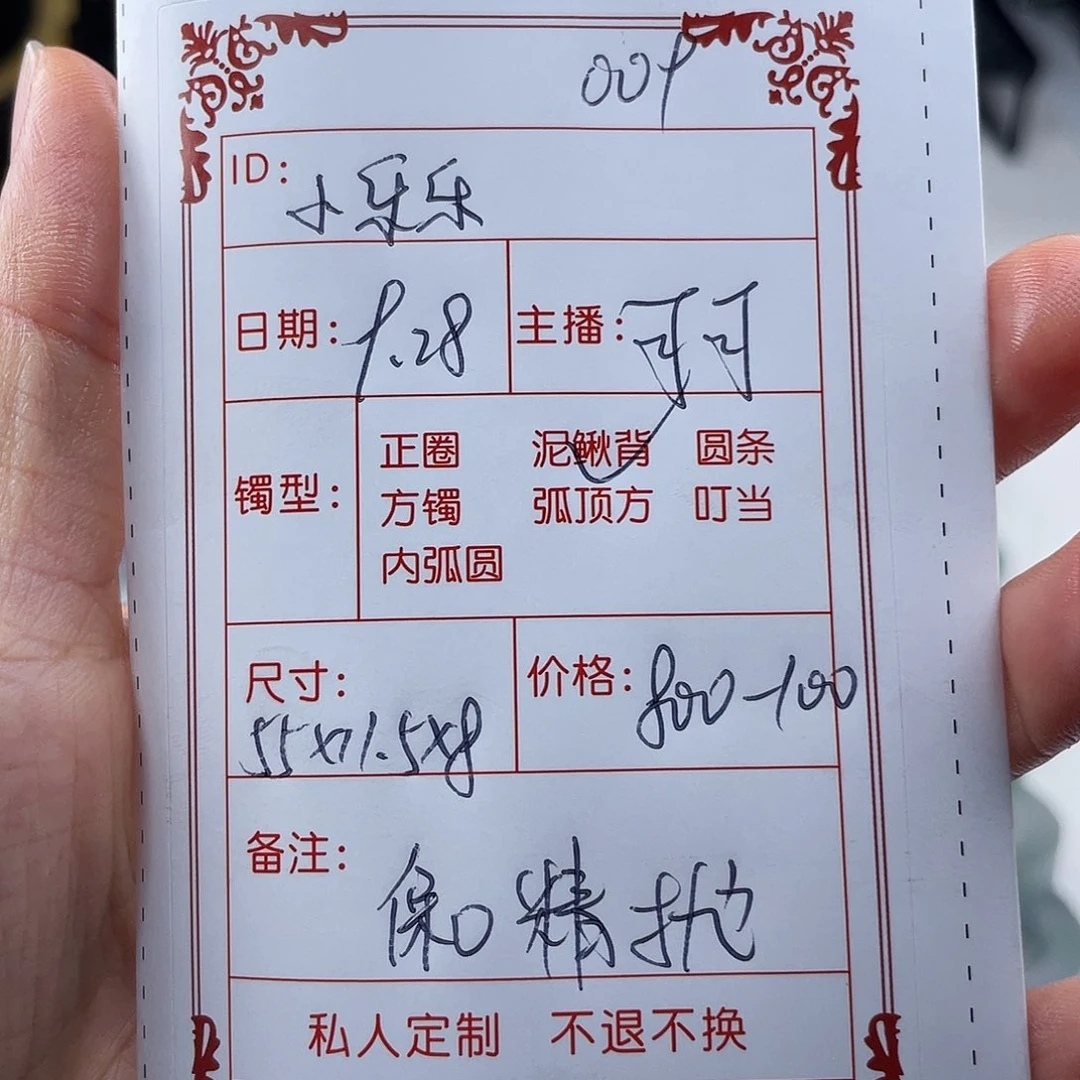 009
ID: 小乐乐
日期: 9.28 主播: 可可
正圈 泥鳅背 圆条
镯型: 方镯 弧顶方 叮当
内弧圆
尺寸: 价格: 800-100
55x11.5x8
备注: 保口 精抛
私人定制 不退不换